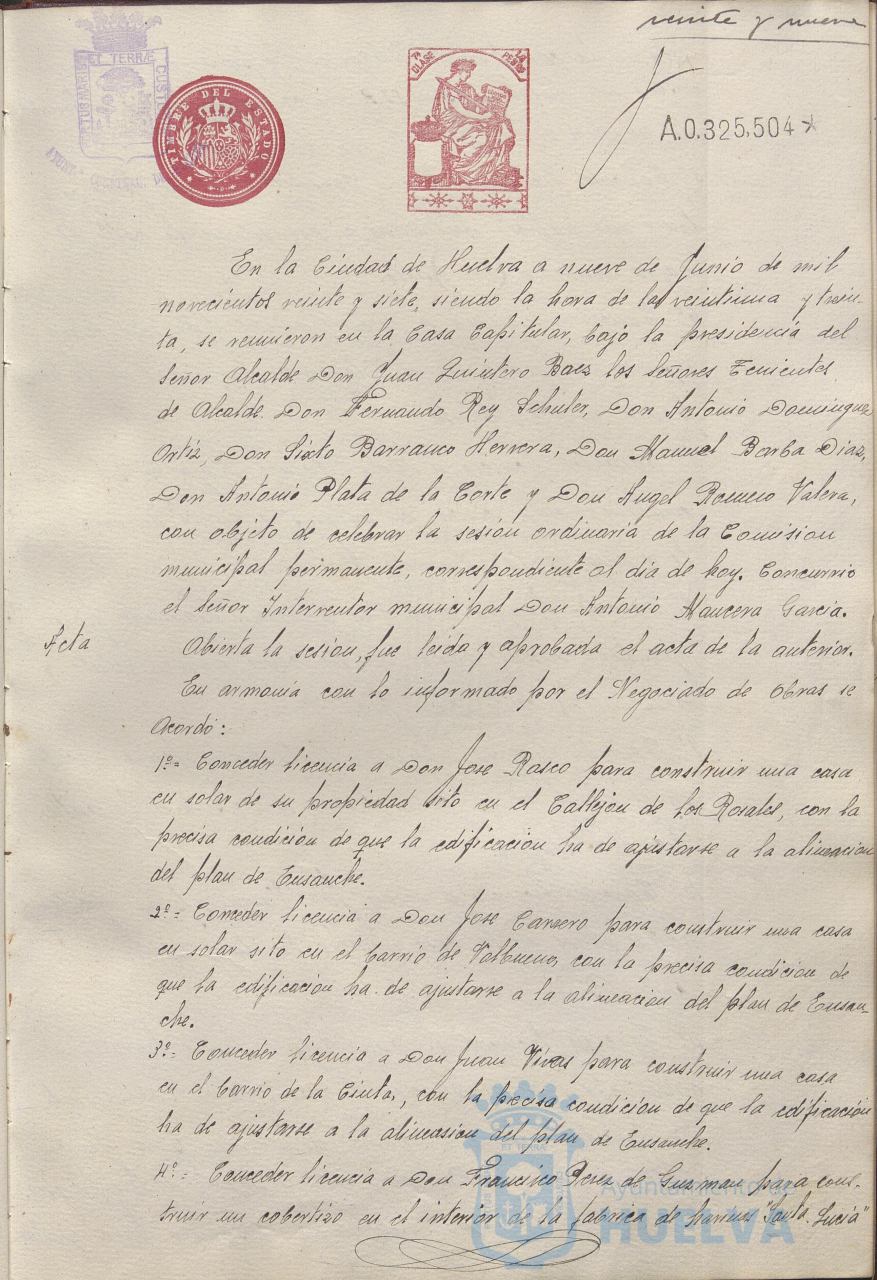 veinte y nueve
ET TERRÆ CUSTO
PORTUS MARIS
TIMBRE DEL ESTADO
7ª CLASE
PESOS
A.0.325,504
En la Ciudad de Huelva a nueve de Junio de mil
novecientos veinte y siete, siendo la hora de la veintiuna y trein-
ta, se reunieron en la Casa Capitular, bajo la presidencia del
Señor Alcalde Don Juan Quintero Baez los Señores Tenientes
de Alcalde Don Fernando Rey Schuler, Don Antonio Dominguez
Ortiz, Don Sixto Barranco Herrera, Don Manuel Barba Diaz,
Don Antonio Plata de la Corte y Don Angel Romero Valera,
con objeto de celebrar la sesion ordinaria de la Comision
municipal permanente, correspondiente al dia de hoy. Concurrio
el Señor Interventor municipal Don Antonio Mancera Garcia.
Acta
Abierta la sesion, fue leida y aprobada el acta de la anterior.
En armonia con lo informado por el Negociado de Obras se
acordó:
1º= Conceder licencia a Don Jose Rasco para construir una casa
en solar de su propiedad sito en el Callejon de los Rosales, con la
precisa condición de que la edificación ha de ajustarse a la alineacion
del plan de Ensanche.
2º= Conceder licencia a Don Jose para construir una casa
en solar sito en el barrio de Valbueno, con la precisa condicion de
que la edificacion ha de ajustarse a la alineacion del plan de Ensan-
che.
3º= Conceder licencia a Don Juan Vivas para construir una casa
en el barrio de la Cinta, con la precisa condicion de que la edificación
ha de ajustarse a la alineasion del plan de Ensanche.
4º= Conceder licencia a Don Francisco Perez de Guzman para cons-
truir un cobertizo en el interior de la fabrica de harinas "Santa Lucia"
Ayuntamiento de
HUELVA